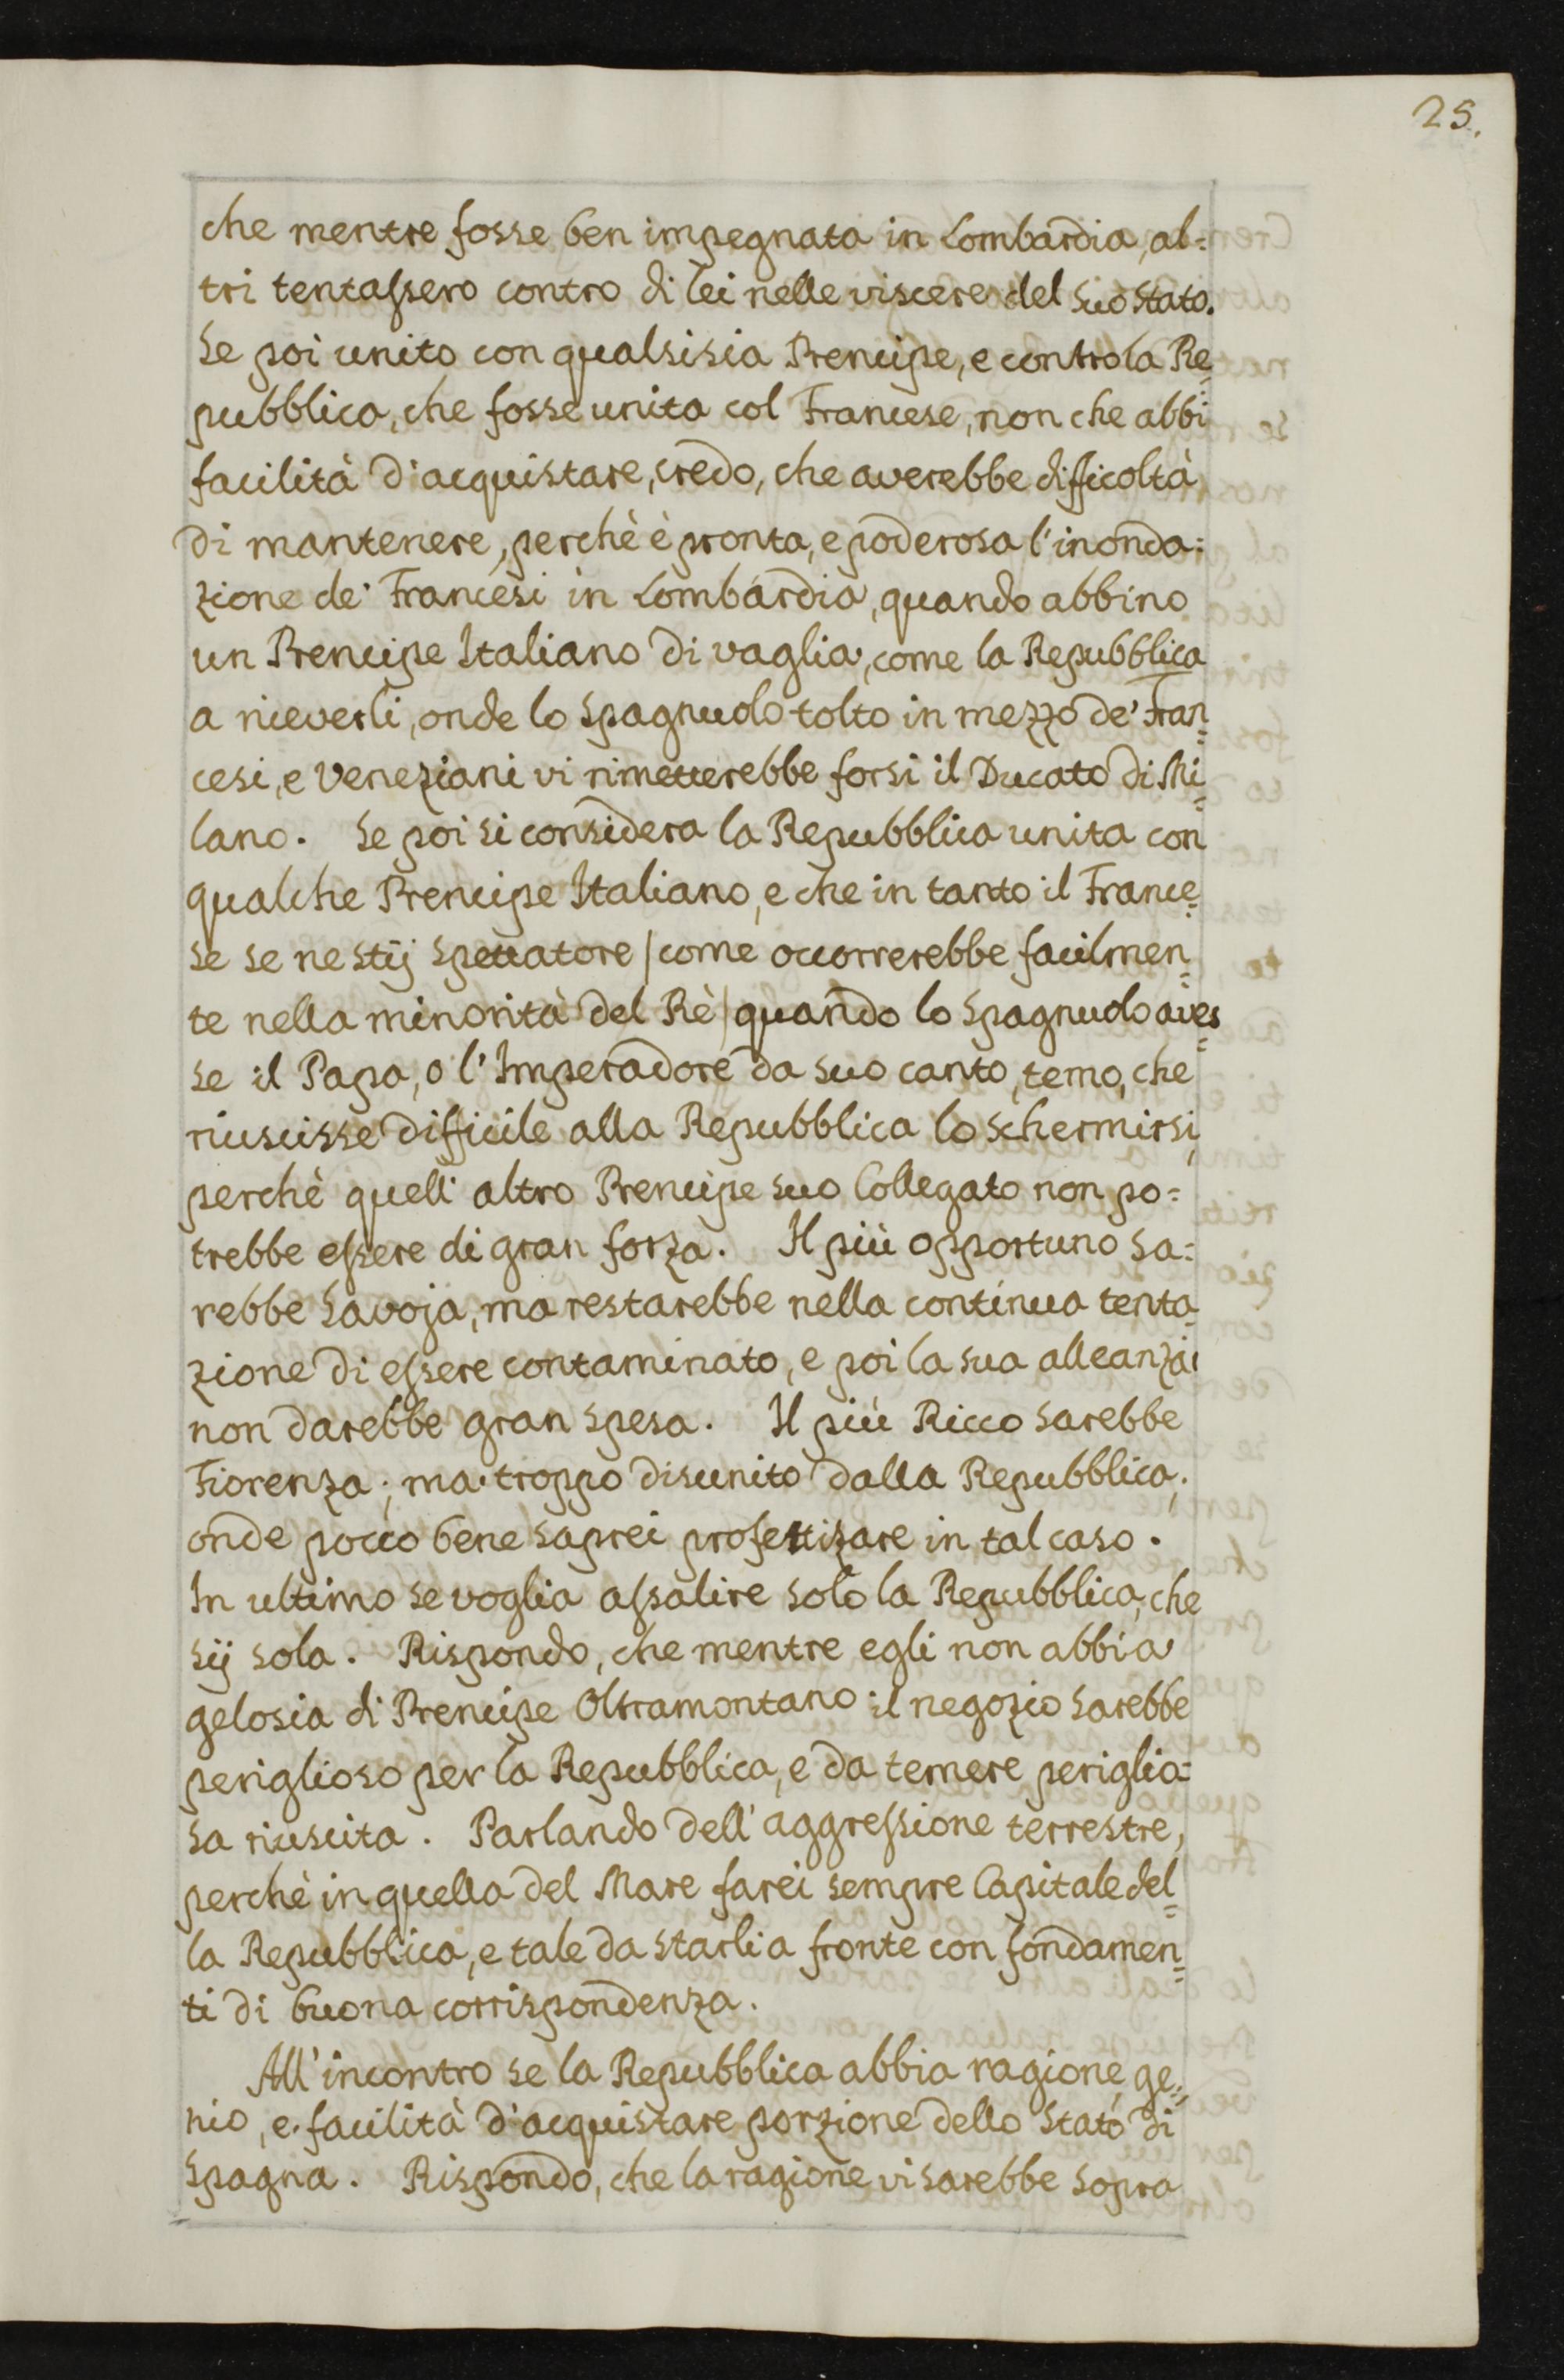 25.
che mentre fosse ben impegnata in Lombardia, al=
tri tentassero contro di lei nelle viscere del suo stato.
Se poi unito con qualsisia Prencipe, e contro la Re=
pubblica, che fosse unita col Francese, non che abbi
facilità d'acquistare, credo, che averebbe difficoltà
di mantenere, perchè è pronta, e poderosa l'inonda=
zione de' Francesi in Lombardia, quando abbino
un Prencipe Italiano di vaglia, come la Repubblica
a riceverli, onde lo Spagnuolo tolto in mezzo de' Fran=
cesi, e Veneziani vi rimetterebbe forsi il Ducato di Mi=
lano. Se poi si considera la Repubblica unita con
qualche Prencipe Italiano, e che in tanto il France=
se se ne stij spettatore / come occorrerebbe facilmen=
te nella minorità del Rè / quando lo Spagnuolo aves=
se il Papa, o l'Imperadore da suo canto, temo, che
riuscisse difficile alla Repubblica lo schermirsi,
perchè quell' altro Prencipe suo Collegato non po=
trebbe essere di gran forza. Il più opportuno sa=
rebbe Savoja, ma restarebbe nella continua tenta=
zione di essere contaminato, e poi la sua alleanza
non darebbe gran spesa. Il più Ricco sarebbe
Fiorenza; ma troppo disunito dalla Repubblica;
onde pocco bene saprei profettizare in tal caso.
In ultimo se voglia assalire solo la Repubblica, che
sij sola. Rispondo, che mentre egli non abbia
gelosia di Prencipe Oltramontano il negozio sarebbe
periglioso per la Repubblica, e da temere periglio=
sa riuscita. Parlando dell' aggressione terrestre,
perchè in quella del Mare farei sempre Capitale del=
la Repubblica, e tale da starli a fronte con fondamen=
ti di buona corrispondenza.
All' incontro se la Repubblica abbia ragione, ge=
nio, e facilità d'acquistare porzione dello Stato di
Spagna. Rispondo, che la ragione vi sarebbe sopra